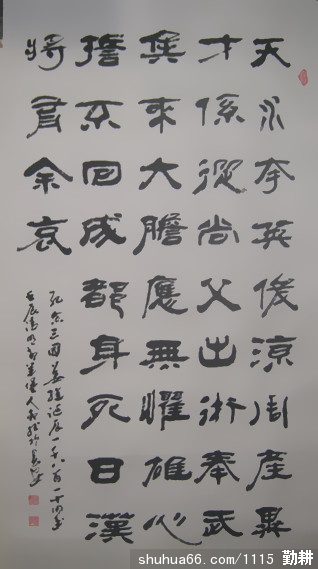 天水夸英俊涼州產異
才係從尚父出術奉武
侯來大膽應無懼雄心
誓不回成都身死日漢
將有余哀
紀念三國姜維誕辰一千八百一十四年
壬辰清明
shuhua66.com/1115 勤耕